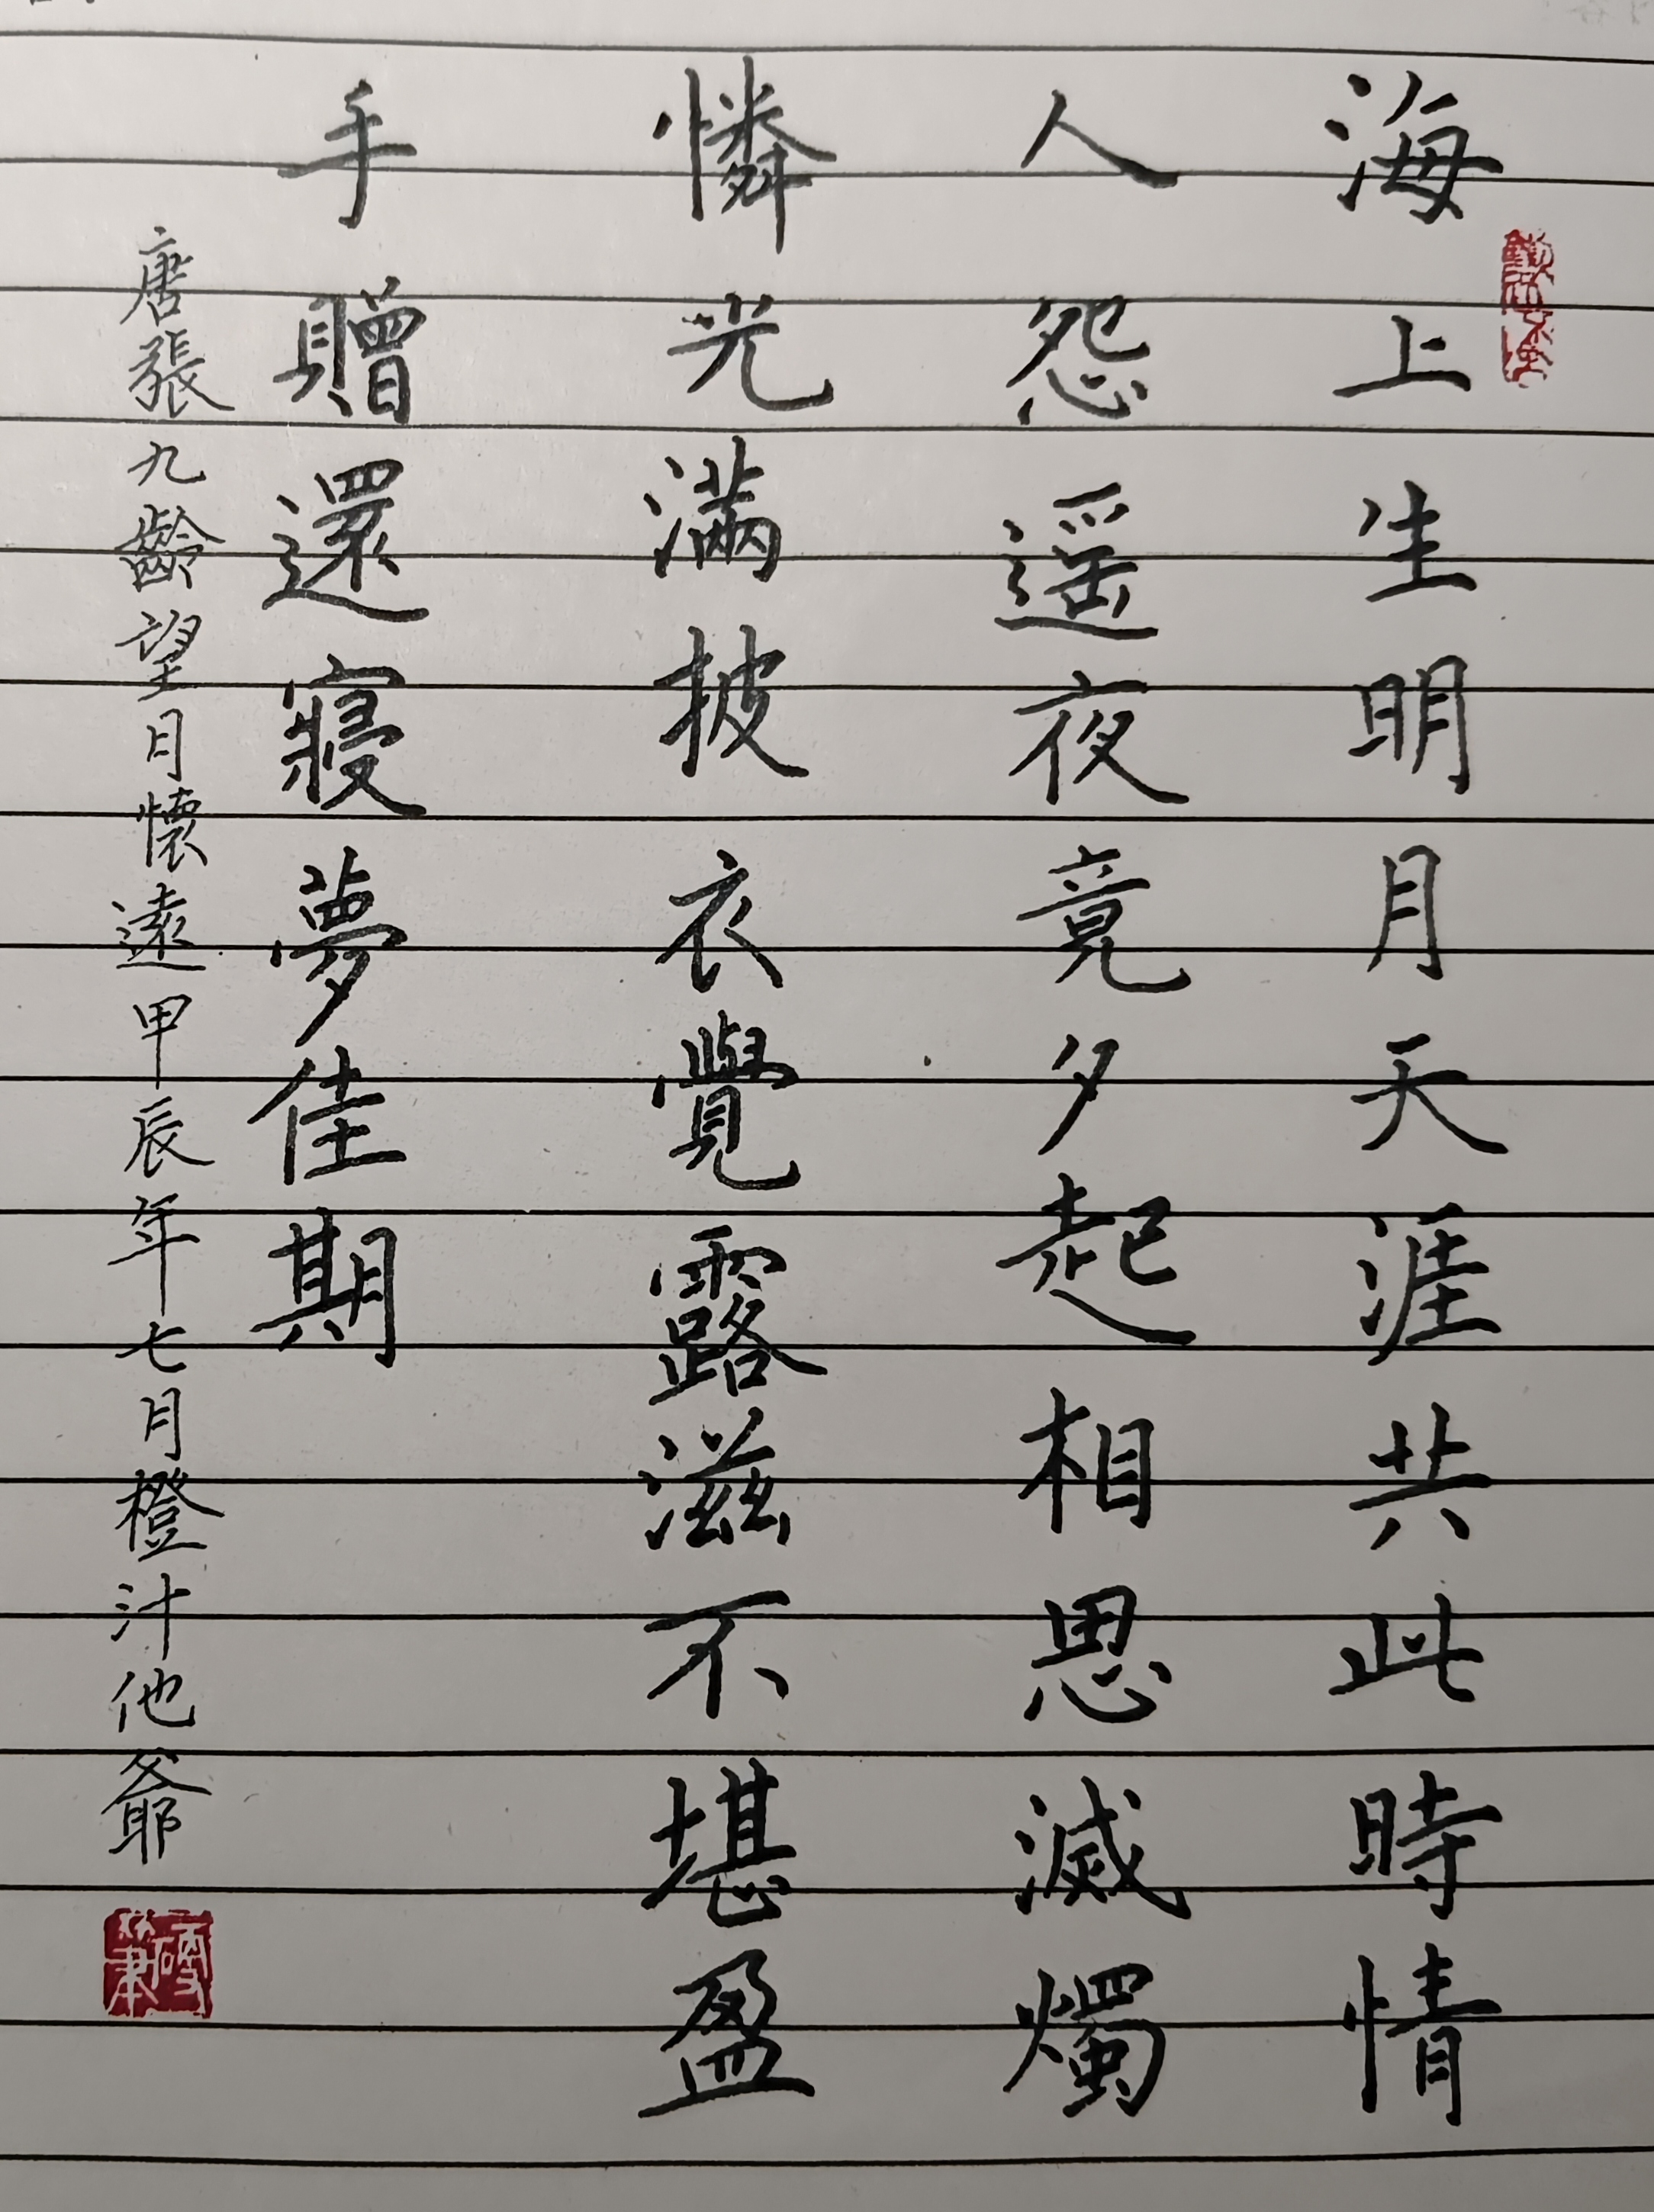 海上生明月天涯共此時情
人怨遥夜竟夕起相思滅燭
憐光滿披衣覺露滋不堪盈
手贈還寢夢佳期
唐張九齡望月懷遠甲辰年七月橙汁他爺